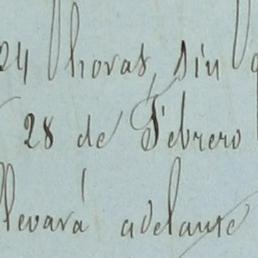 24 horas, sin
28 de Febrero
llevará adelante